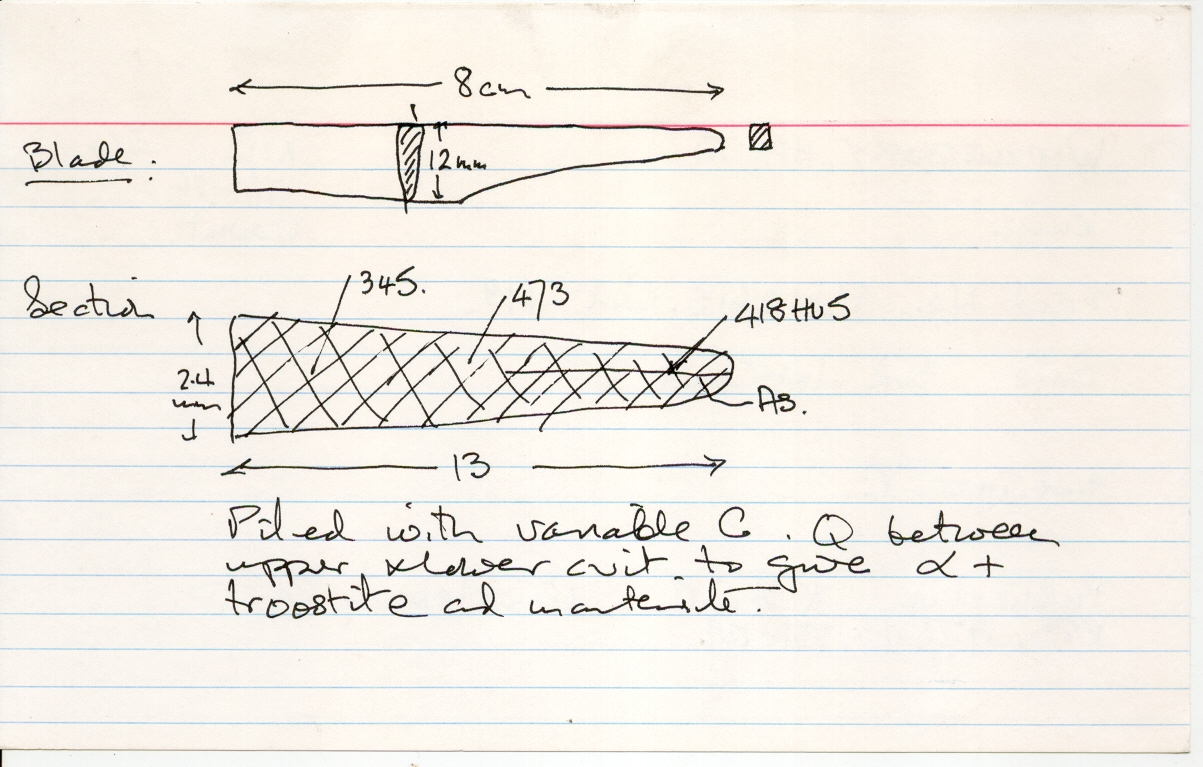 8cm
Blade.
12mm
Section
345.
473
418 HV5
2.4
mm
As.
13
Piled with variable C. Q between
upper & lower crit to give α +
troostite and martensite.